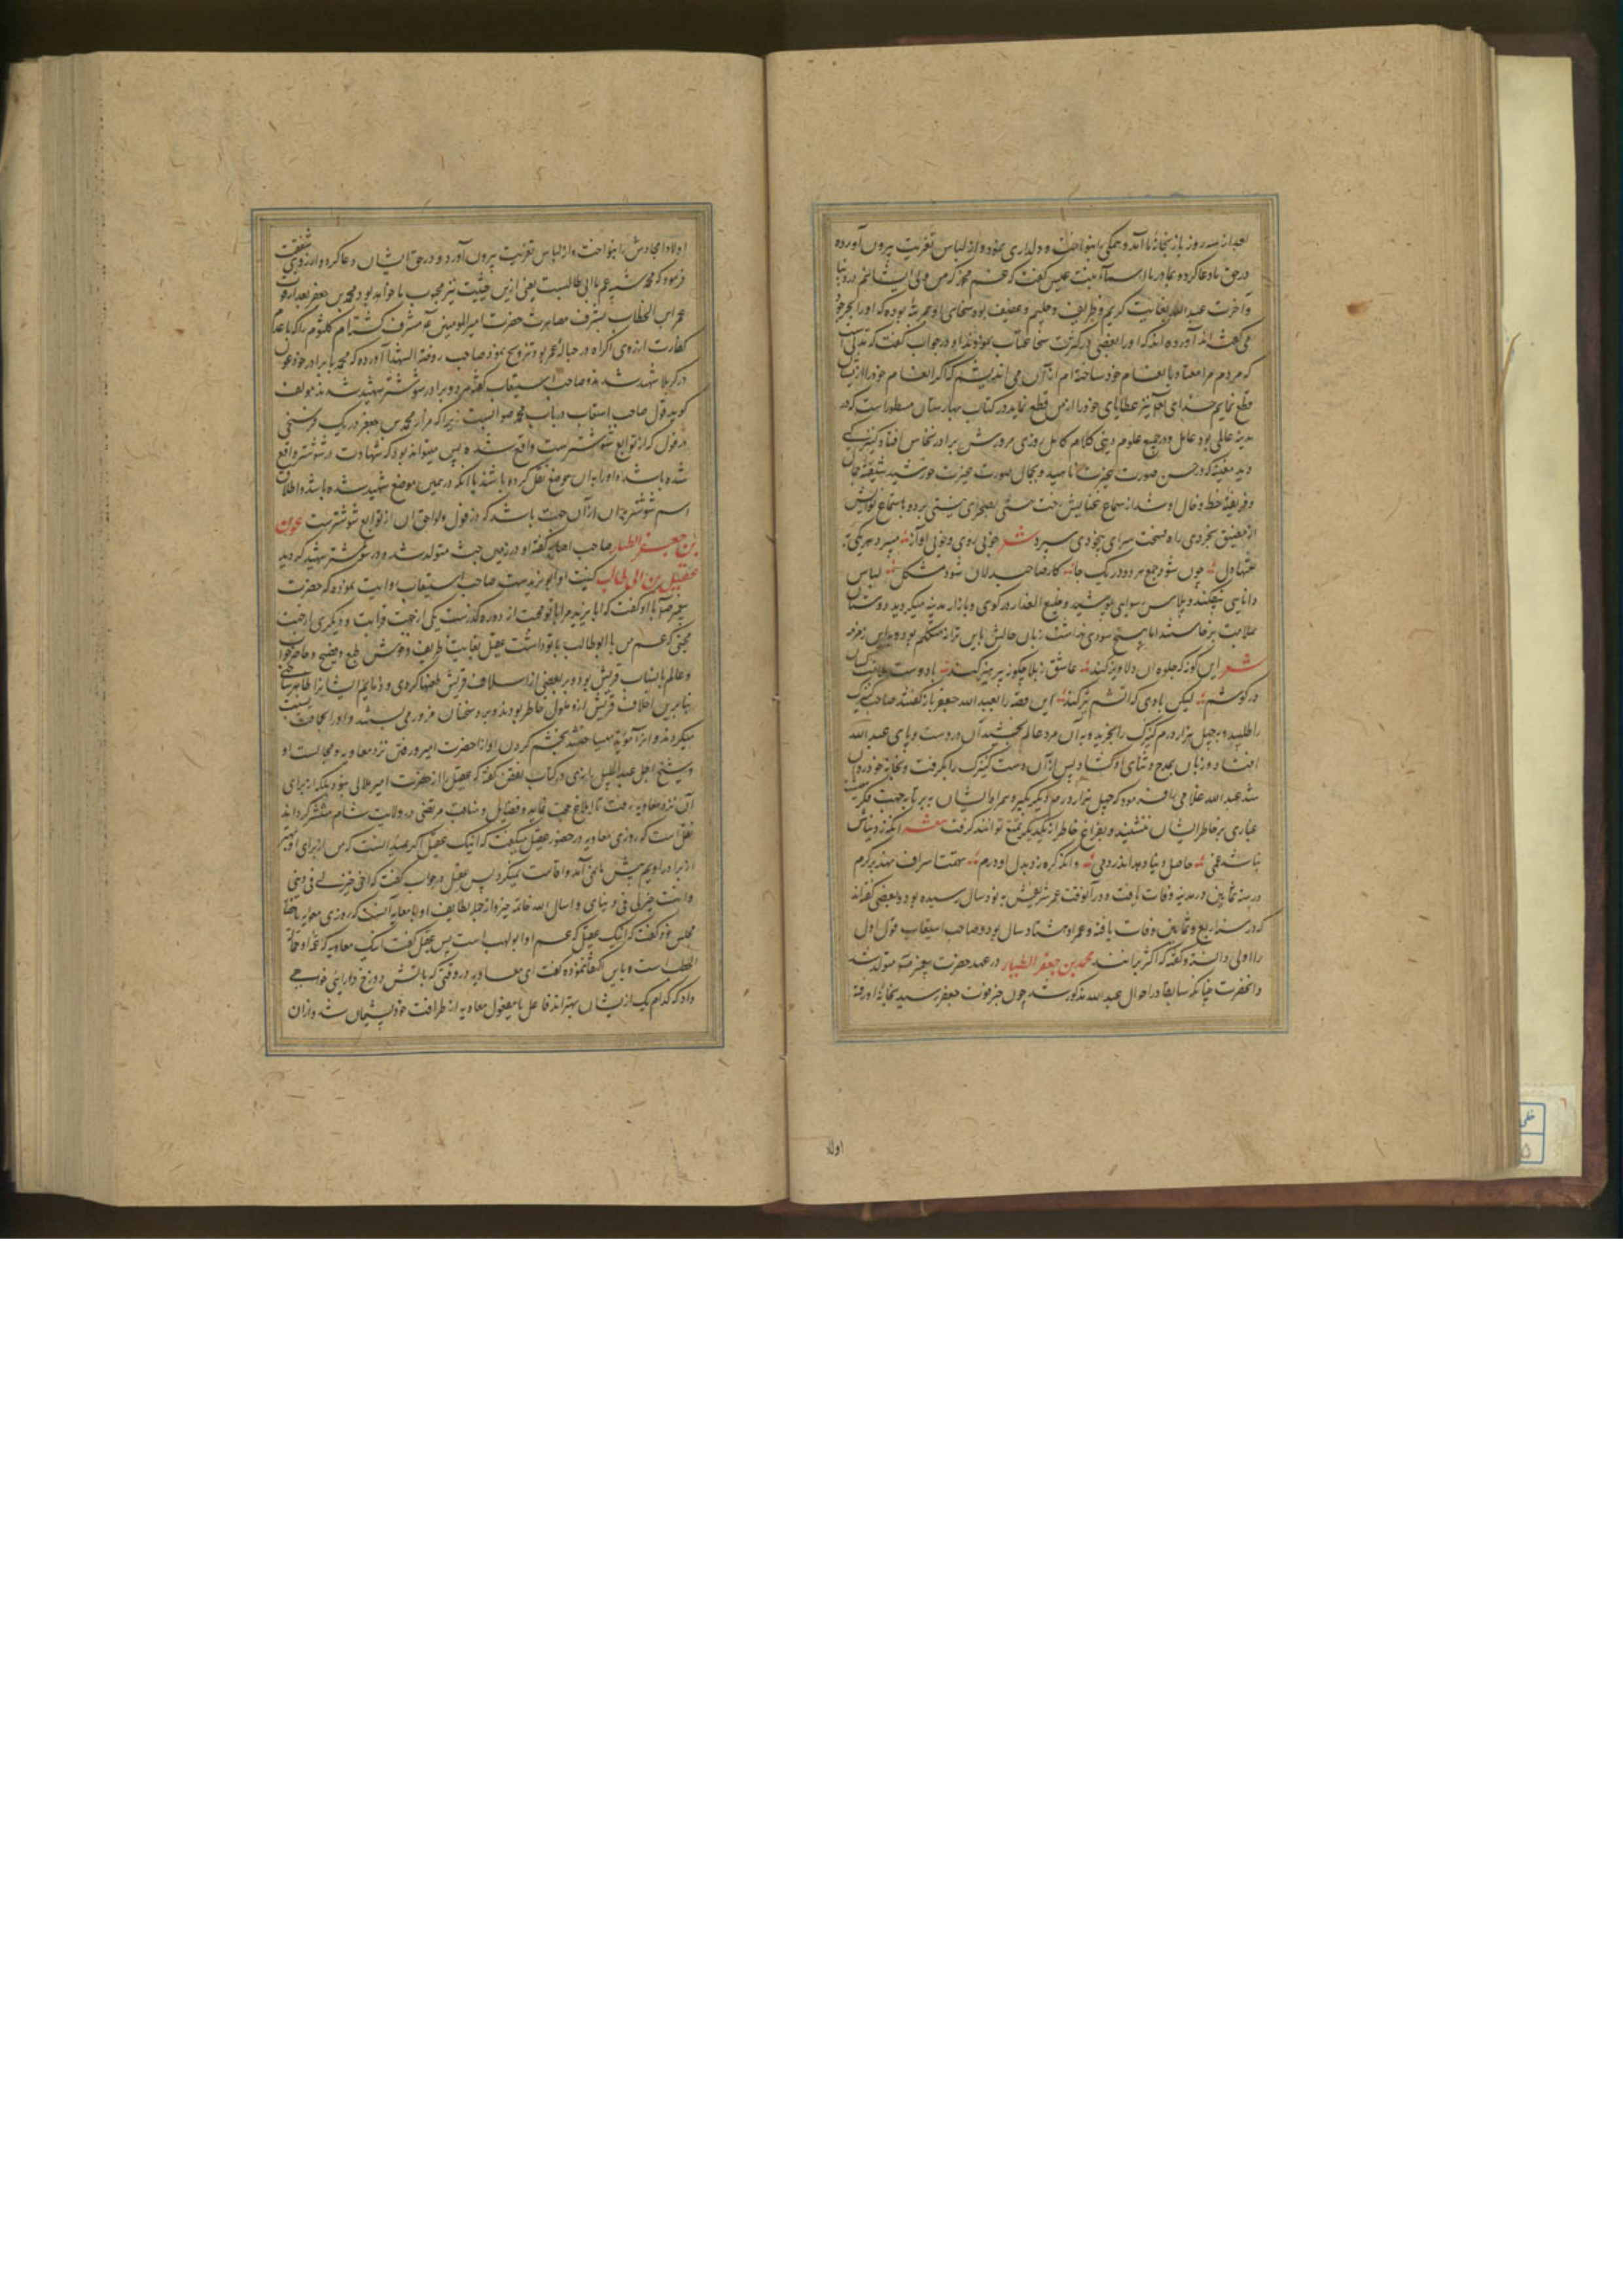 بعد از سه روز باز بخانه ما آمد و همگی را بنواخت و دلداری نموده و از لباس تعزیت بیرون آورده
در حق ما دعا کرده و بمادر ما اسماء بنت عمیس گفت که غم مخور که من ولی ایشانم در دنیا
و آخرت عبدالله بغایت کریم و ظریف و حلیم و عفیف بوده سخای او بمرتبه بوده که او را بحر جود
می گفته اند آورده اند که او را بعضی در کثرت سخا عتاب نمودند او در جواب گفت که مدتی است
که مردم را معتاد بانعام خود ساخته ام از آن می اندیشم که اگر انعام خود را از ایشان
قطع نمایم خدای نیز عطایای خود را از من قطع نماید در کتاب بهارستان مسطور است که در
مدینه عالمی بود عامل و در جمیع علوم دینی کلام کامل روزی مرورش بر در نخاس افتاد کنیزکی
دید مغنیه که در حسن صورت غیرت ناهید و بجمال صورت حیرت خورشید شیفته جمال
و فریفته خط و خال او شد از سماع غنایش رخت هستی بصحرای نیستی برد و باستماع نوایش
از مضیق بخردی راه فسحت سرای بیخودی سپرد شعر خوبی روی و خوبی آواز میبرد هر یکی
بتنها دل چون شود جمع هر دو در یک جا کار صاحبدلان شود مشکل لباس
دانایی بیفکند و پلاس رسوایی پوشید و خلیع العذار در کوی و بازار مدینه میگردید دوستان
بملامت برخاستند اما هیچ سودی نداشت زبان حالش باین ترانه متکلم بود و باین زمزمه
شعر این گونه که جلوه آن دلاویز کند عاشق ز بلا چگونه پرهیز کند باد است ملامت کسان
در گوشم لیکن بادی که آتشم تیز کند این قصه را بعبدالله جعفر باز گفتند صاحب کنیزک
را طلبید و بچهل هزار درم کنیزک را بخرید و به آن مرد عالم بخشید آن در دست و پای عبدالله
افتاد و زبان بمدح و ثنای او گشاد پس از آن دست کنیزک را گرفت و بخانه خود روان
شد عبدالله غلامی را فرمود که چهل هزار درم دیگر بگیر و همراه ایشان ببر تا بجهت فکر معیشت
غباری بر خاطر ایشان ننشیند و بفراغ خاطر از یکدیگر تمتع توانند گرفت
در سنه ثمانین در مدینه وفات یافت و در آنوقت عمر شریفش به نود سال رسیده بود و بعضی گفته اند
که در سنه اربع و ثمانین وفات یافته و عمر او هشتاد سال بود و صاحب استیعاب قول اول
را اولی دانسته و گفته که اکثر برانند محمد بن جعفر الطیار در عهد حضرت پیغمبر متولد شد
و آنحضرت چنانکه سابقا در احوال عبدالله مذکور شد چون خبر فوت جعفر رسید بخانه او رفته
اولاد
اولاد امجادش را بنواخت و از لباس تعزیت بیرون آورد و در حق ایشان دعا کرده و از روی شفقت
فرمود که محمد شبیه عم ما ابی طالبست یعنی ازین حیثیت نیز محبوب ما خواهد بود و محمد بن جعفر بعد از فوت
عمر ابن الخطاب بشرف مصاهرت حضرت امیرالمومنین مشرف گشته ام کلثوم را که با عدم
کفاءت از روی اکراه در حباله عمر بود تزویج نمود صاحب روضة الشهدا آورده که محمد با برادر خود عون
در کربلا شهید شدند و صاحب استیعاب گفته هر دو برادر در شوشتر شهید شدند مولف
گوید قول صاحب استیعاب در باب محمد صوابست زیرا که مزار محمد بن جعفر در یک فرسخی
دزفول که از توابع شوشترست واقع شده پس میتواند بود که شهادت در شوشتر واقع
شده باشد و او را بدان موضع نقل کرده باشند یا آنکه در همین موضع شهید شده باشد و اطلاق
اسم شوشتر بدان از آن جهت باشد که دزفول و لواحق آن از توابع شوشترست عون
بن جعفر الطیار صاحب اصابه گفته او در زمین حبشه متولد شد و در شوشتر شهید گردید
عقیل بن ابی طالب کنیت او ابو یزیدست صاحب استیعاب روایت نموده که حضرت
پیغمبر با او گفت که ابا یزید مرا با تو محبت از دو رهگذرست یکی از جهت قرابت و دیگری از جهت
محبتی که عم من ابوطالب با تو داشت عقیل بغایت ظریف و خوش طبع و فصیح و حاضر جواب
و عالم بانساب قریش بود و بر بعضی از اسلاف قریش طعنها کردی و ذمایم ایشانرا ظاهر ساختی
بنابرین اخلاف قریش ازو ملول خاطر بودند و برو سخنان مزور می بستند و او را بحماقت نسبت
میکردند و خشم کردن او از حضرت امیر و رفتن نزد معاویه و مجالست او
و شیخ اجل عبدالجلیل رازی در کتاب نقض گفته که عقیل را از حضرت امیر ملالی نبود بلکه از برای
آن نزد معاویه رفت تا ابلاغ حجت نماید و فضایل و مناقب مرتضی در ولایت شام منتشر گرداند
نقل است که روزی معاویه در حضور عقیل میگفت که اینک عقیل اگر نمیدانست که من از برای او بهتر
از برادر اویم پیش ما نمی آمد و اقامت نمیکرد پس عقیل در جواب گفت که اخی خیر لی فی دینی
و انت خیر لی فی دنیای و اسال الله خاتمة خیر و از جمله لطایف او با معاویه آنست که روزی معویه باهل
مجلس خود گفت که اینک عقیل که عم او ابولهب است پس عقیل گفت اینک معاویه که عمه او حمالة
الحطب است و باین اکتفا ننموده گفت ای معاویه در وقتی که بآتش دوزخ درآیی خواهی
دید که کدام یک از ایشان بهترند فاعل یا مفعول معاویه از ظرافت خود پشیمان شد و از آن